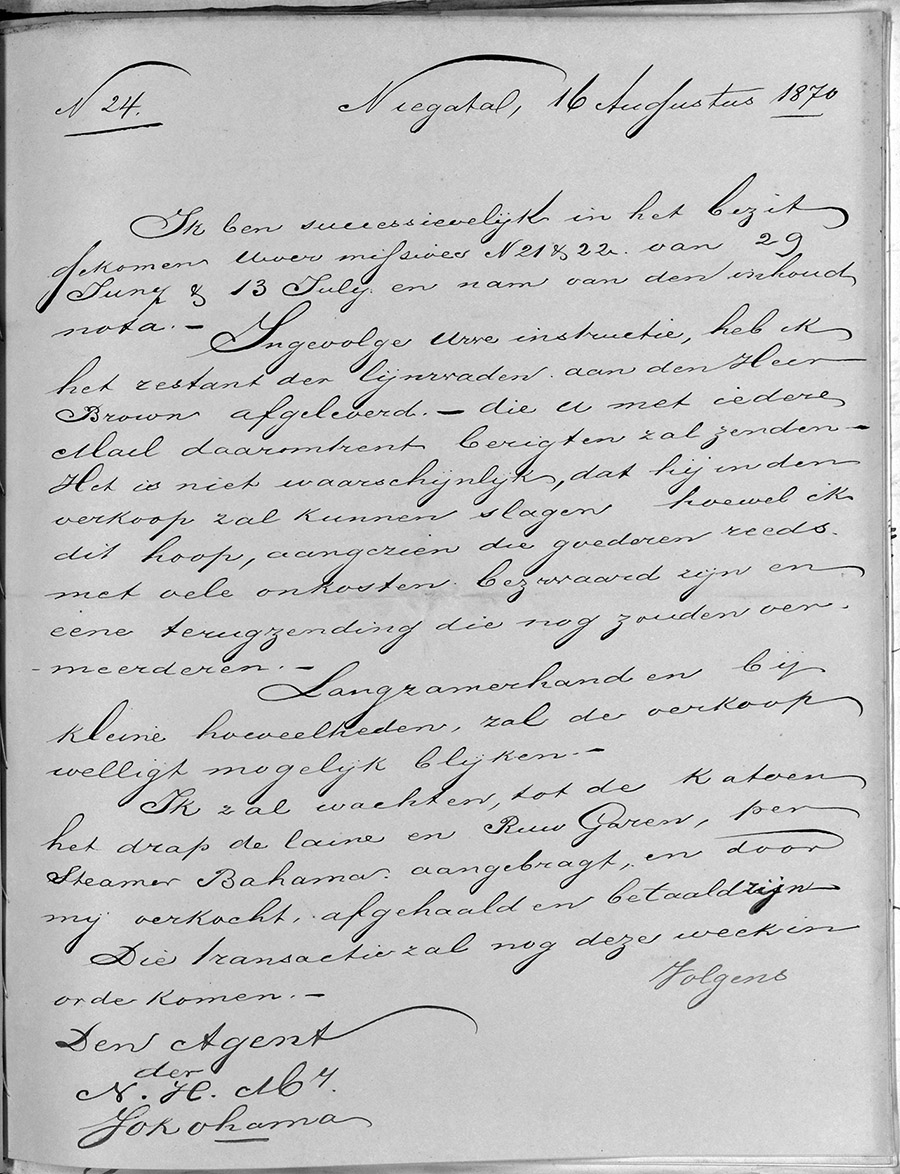 N 24.
Niegatal, 16 Augustus 1870
Ik ben successievelijk in het bezit
gekomen Uwer missives N 21 & 22. van 29
Juny & 13 July. en nam van den inhoud
nota. —
Ingevolge Uwe instructie, heb ik
het restant der lijnwaden aan den Heer
Brown afgeleverd. — die U met iedere
Mail daaromtrent berigten zal zenden —
Het is niet waarschijnlijk, dat hij in den
verkoop zal kunnen slagen hoewel ik
dit hoop, aangezien die goederen reeds.
met vele onkosten bezwaard zijn en
eene terugzending die nog zouden ver-
-meerderen. —
Langzamerhand en bij
kleine hoeveelheden, zal de verkoop
welligt mogelijk blijken. —
Ik zal wachten, tot de Katoen
het drap de laine en Ruw Garen, per
Steamer Bahama. aangebragt, en door
mij verkocht, afgehaald en betaald zijn
Die transactie zal nog deze week in
orde komen. —
Volgens
Den Agent
der
N. H. My.
Yokohama